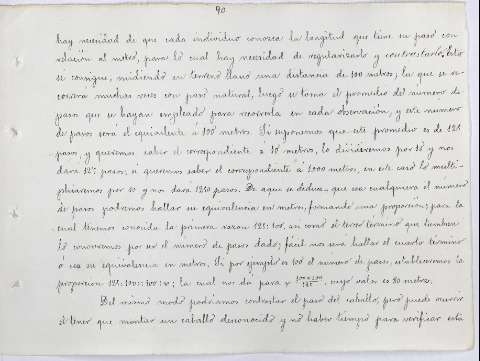 90.
hay necesidad de que cada individuo conozca la longitud que tiene su paso con
relación al metro, para lo cual hay necesidad de regularizarlo y contrastarlo. Esto
se consigue, midiendo en terreno llano una distancia de 100 metros; la que se re-
correrá muchas veces con paso natural, luego se toma el promedio del número de
pasos que se hayan empleado para recorrerla en cada observación, y este numero
de pasos será el equivalente á 100 metros. Si suponemos que este promedio es de 125
pasos, y queremos saber el correspondiente á 10 metros, lo dividiremos por 10 y nos
dará 12'5 pasos; si queremos saber el correspondiente á 1000 metros, en este caso lo multi-
plicaremos por 10 y nos dará 1250 pasos. De aqui se deduce que sea cualquiera el numero
de pasos podremos hallar su equivalencia en metros, formando una proporción; para la
cual tenemos conocida la primera razon 125:100, asi como el tercer termino que tambien
lo conocemos por ser el numero de pasos dado; fácil nos será hallar el cuarto termino
ó sea su equivalencia en metros. Si por ejemplo es 100 el numero de pasos, estableceremos la
proporcion 125:100::100:x; la cual nos dá para x 100×100/125, cuyo valor es 80 metros.
Del mismo modo podriamos contrastar el paso del caballo, pero puede ocurrir
el tener que montar un caballo desconocido y no haber tiempo para verificar esta